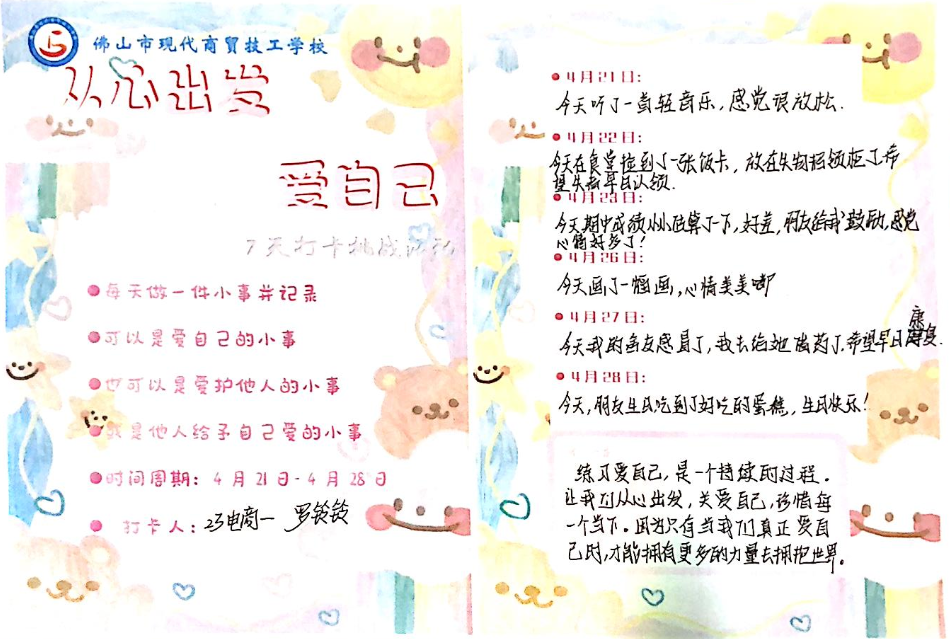 佛山市现代商贸技工学校
从心出发
爱自己
7天打卡挑战
每天做一件小事并记录
可以是爱自己的小事
也可以是爱护他人的小事
或是他人给予自己爱的小事
时间周期：4月21日-4月28日
打卡人：23电商一 罗铵铵
4月21日：
今天听了一首轻音乐，感觉很放松.
4月22日：
今天在食堂捡到了一张饭卡，放在失物招领柜了希
望失主早日认领.
4月23日：
今天期中成绩估算了一下，好差，朋友给我鼓励，感觉
心情好多了！
4月26日：
今天画了一幅画，心情美美嘟
4月27日：
今天我的舍友感冒了，我去给她 药了，希望早日康复.
4月28日：
今天，朋友生日吃到了好吃的蛋糕，生日快乐！
练习爱自己，是一个持续的过程.
让我们从心出发，关爱自己，珍惜每
一个当下。因为只有当我们真正爱自
己时，才能拥有更多的力量去拥抱世界。